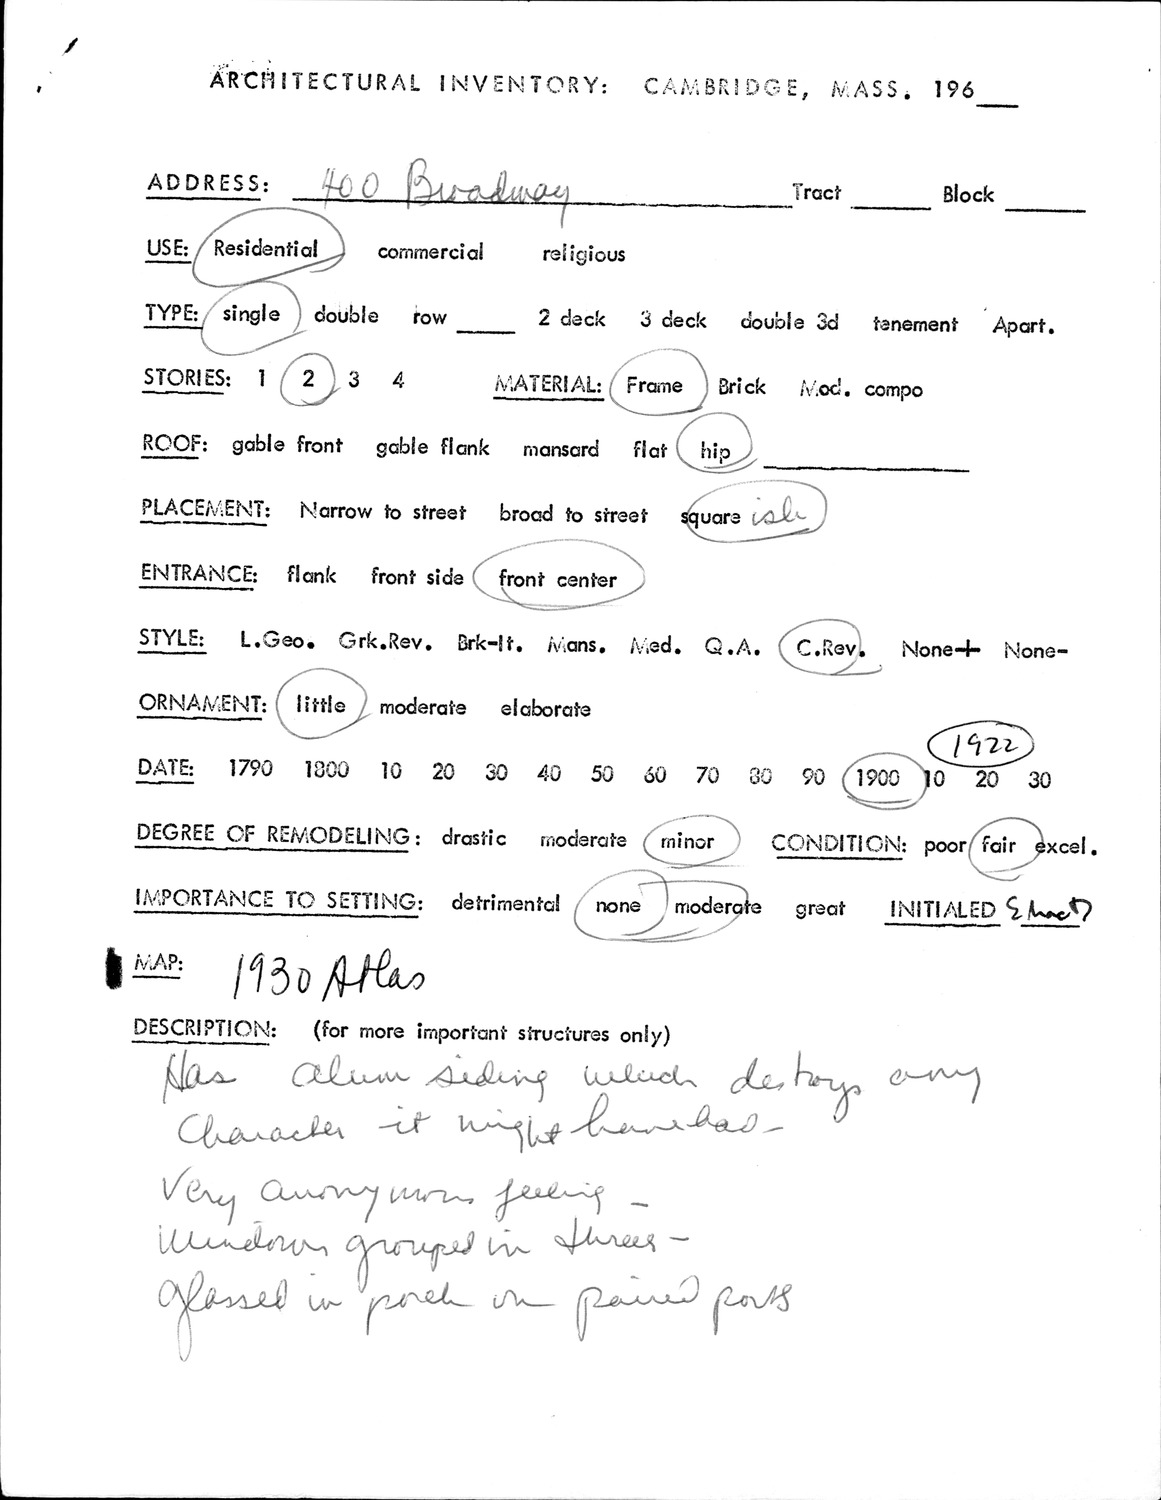 ARCHITECTURAL INVENTORY: CAMBRIDGE, MASS. 196___
ADDRESS: 400 Broadway Tract ______ Block ______
USE: Residential commercial religious
TYPE: single double row ____ 2 deck 3 deck double 3d tenement Apart.
STORIES: 1 2 3 4 MATERIAL: Frame Brick Mod. compo
ROOF: gable front gable flank mansard flat hip ______________
PLACEMENT: Narrow to street broad to street square ish
ENTRANCE: flank front side front center
STYLE: L.Geo. Grk.Rev. Brk-It. Mans. Med. Q.A. C.Rev. None+ None-
ORNAMENT: little moderate elaborate
1922
DATE: 1790 1800 10 20 30 40 50 60 70 80 90 1900 10 20 30
DEGREE OF REMODELING: drastic moderate minor CONDITION: poor fair excel.
IMPORTANCE TO SETTING: detrimental none moderate great INITIALED
MAP: 1930 Atlas
DESCRIPTION: (for more important structures only)
Has alum siding which destroys any
Character it might have had -
Very anonymous feeling -
Windows grouped in threes -
glassed in porch on paired posts